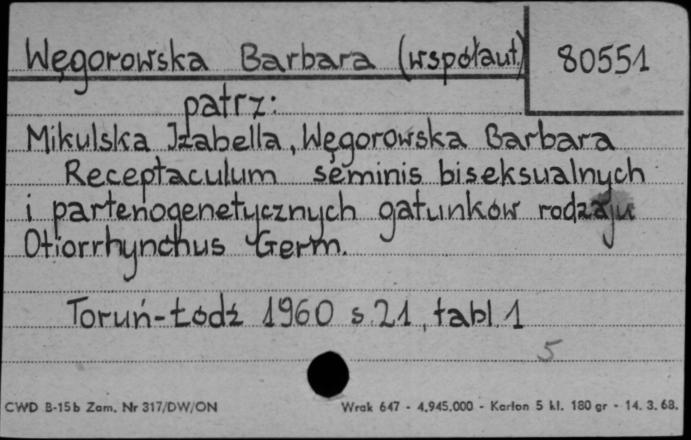 Węgorowska Barbara (współaut.) 80551
patrz:
Mikulska Izabella, Węgorowska Barbara
Receptaculum seminis biseksualnych
i partenogenetycznych gatunków rodzaju
Otiorrhynchus Germ.
Toruń-Łódź 1960 s. 21, tabl. 1
5
CWD B-15b Zam. Nr 317/DW/ON Wrak 647 - 4.945.000 - Karton 5 kl. 180 gr - 14. 3. 68.